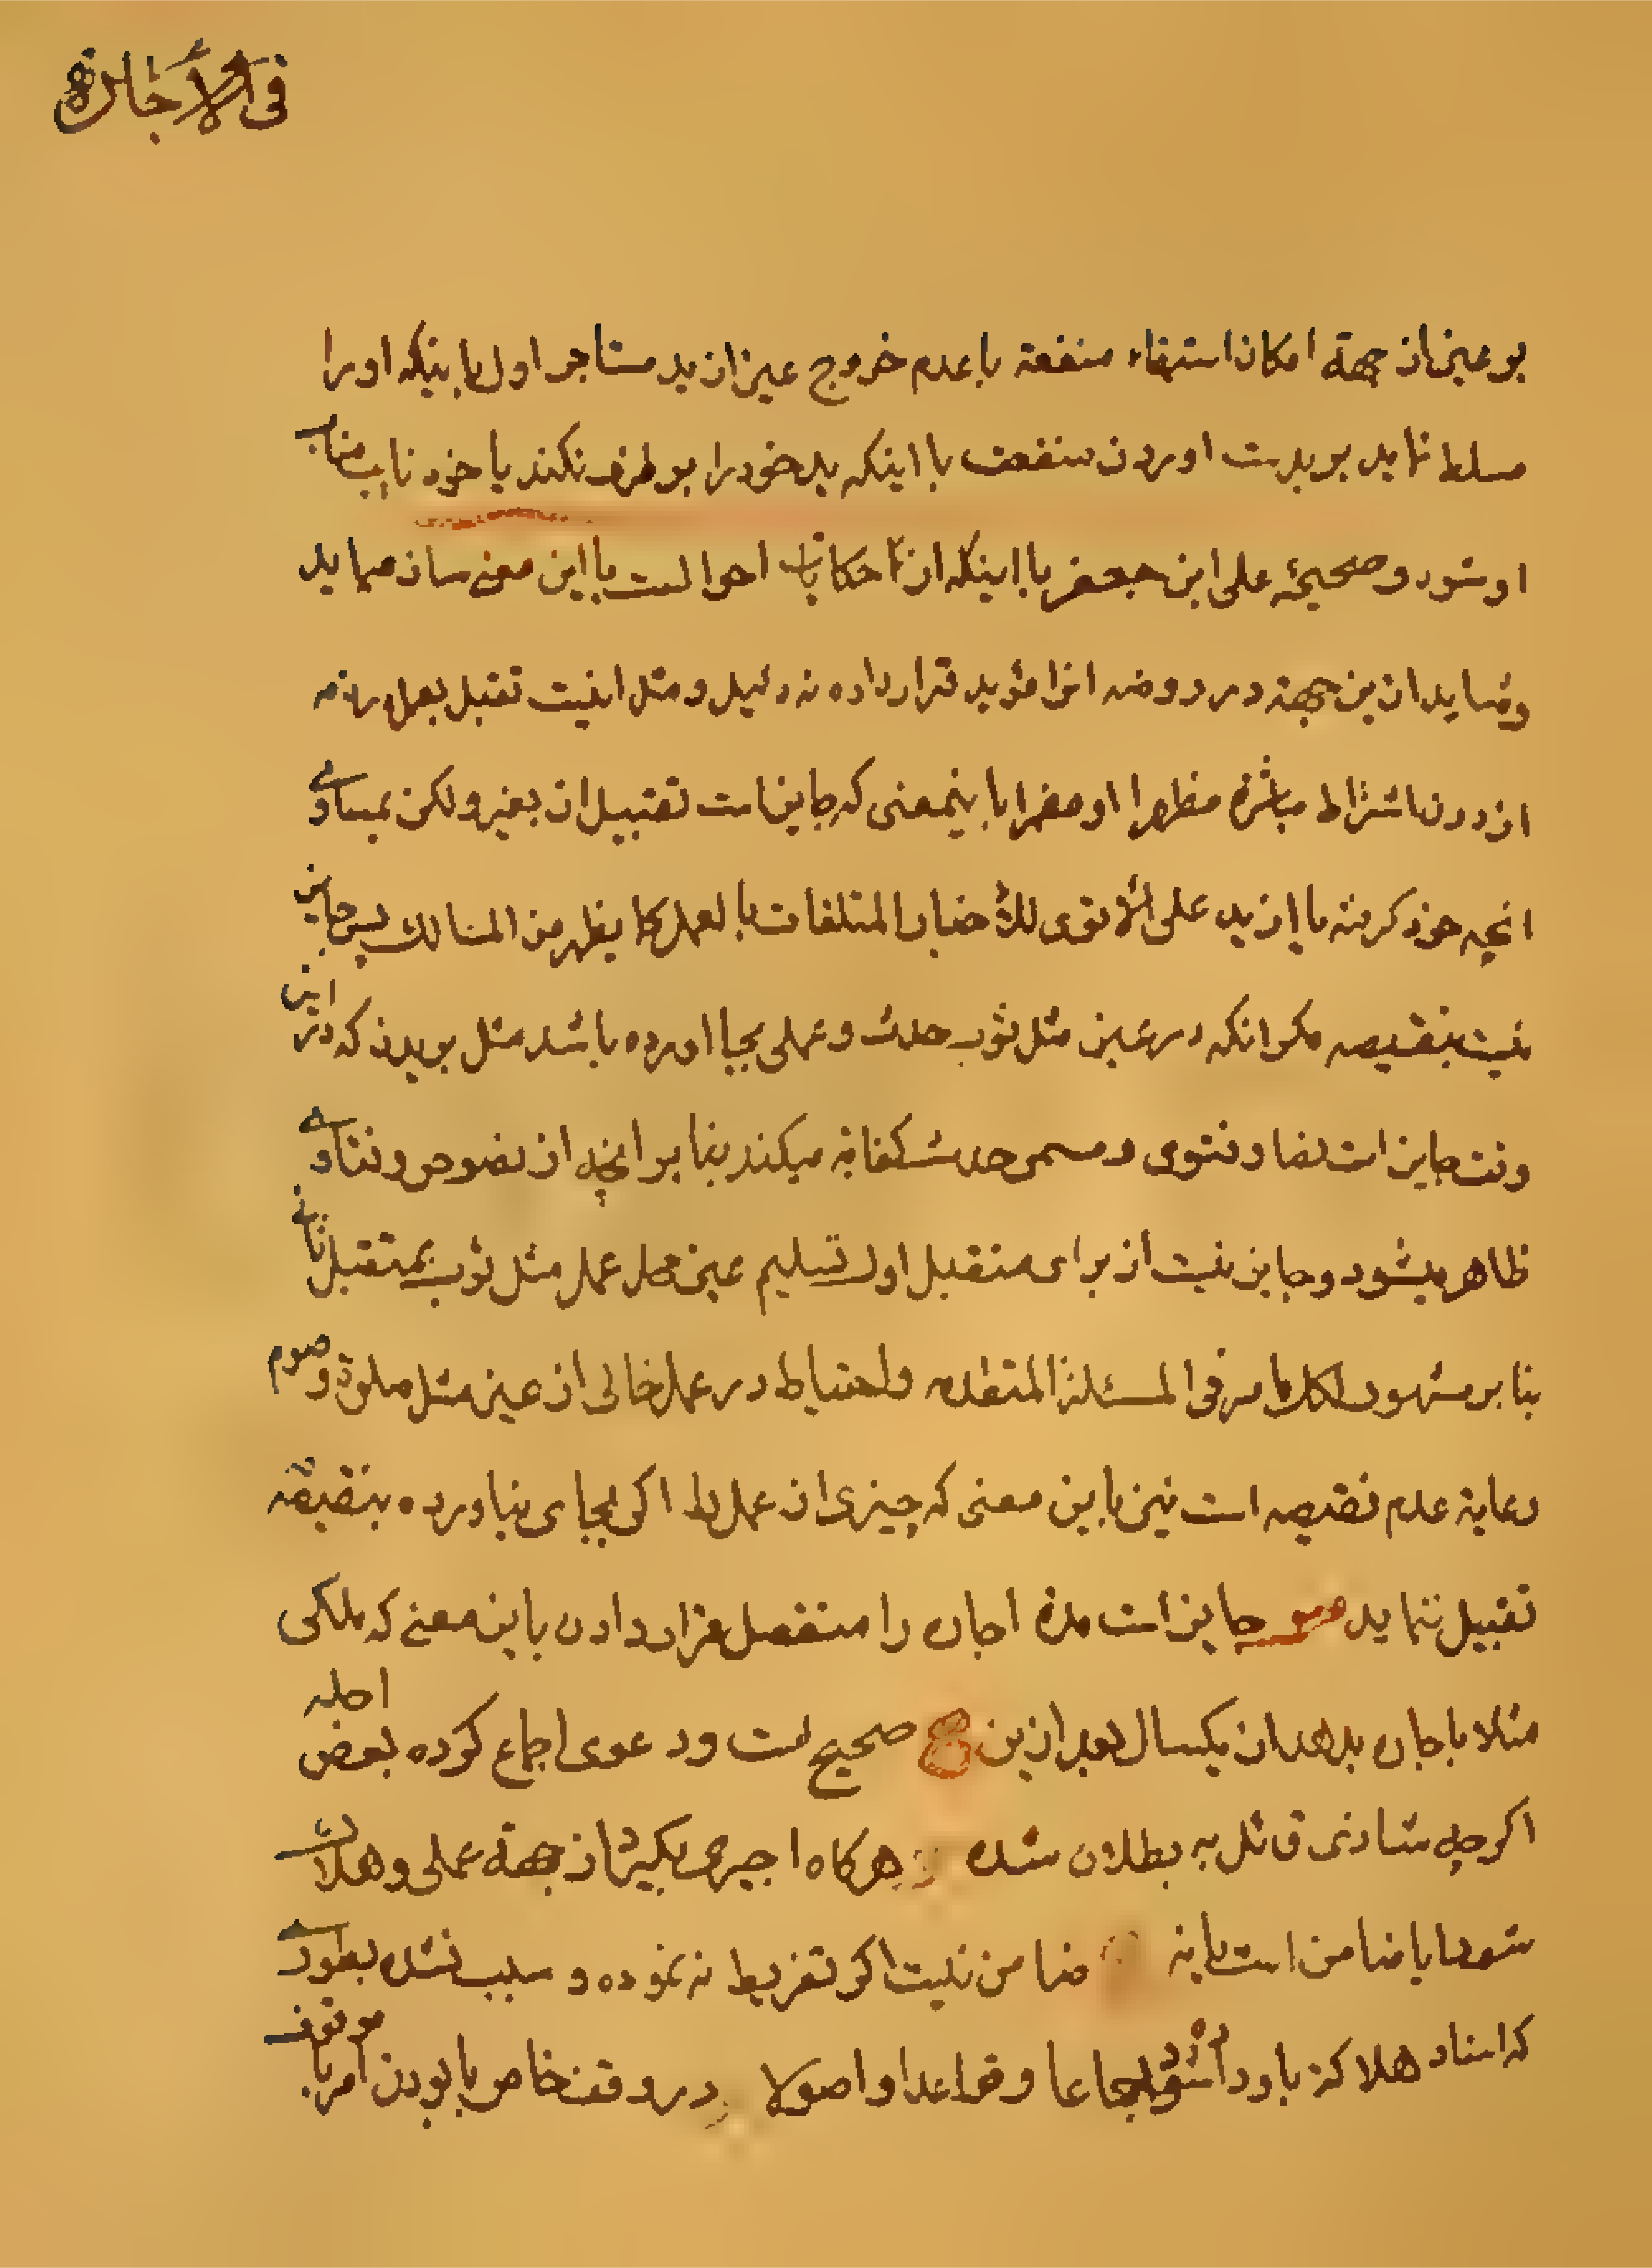 فی الأجارة
بر عین از جهة امکان استیفاء منفعة با عدم خروج عین از ید مستاجر اول یا باینکه او را
مسلط نماید بر بدست اوردن منفعت با اینکه ید خود را بر طرف نکند یا خود نایب مناب
او شود و صحیحهٔ علی ابن جعفر با اینکه از احوالست با این معنی سازد میماید
و شاید از ین جهة در روضه انرا مؤید قرار داده نه دلیل و مثل اینست تقبل بعمل در ذمه
از دون اشتراط مباشرة مظهرا او مضمرا باینمعنی که جایز است تقبیل ان بغیر ولکن بمساوی
انچه خود کرفته یا ازید علی الاقوی للأخبار المتلقات بالعمل کما یظهر من المسالک پس جایز
نیست بنقیصه مکر انکه در عین مثل ثوب حدث و عملی بجا اورده باشد مثل بریدن که در این
وقت جایز است نصا و فتوی و مسمی حدث کفایة میکند بنا بر انچه از نصوص و فتاوی
ظاهر میشود و جایز نیست از برای متقبل اول تسلیم عین محل عمل مثل ثوب بمتقبل ثانی
بنا بر مشهور لکل ما مر فی المسئلة المتقدمه و احتیاط در عمل خالی از عین مثل صلوة و صوم
رعایة عدم نقیصه است نیز باین معنی که چیزی از عمل را اکر بجای نیاورده بنقیصه
تقبیل ننماید جایز است مدة اجاره را منفصل قرار دادن باین معنی که ملکی
مثلا باجاره بدهد از یکسال بعد از ین صحیح است و دعوی اجماع کرده بعض اجله
اکرچه شاذی قائل به بطلان شده هرکاه اجیری بکیرد از جهة عملی و هلاک
شود ایا ضامن است یا نه ضامن نیست اکر تفریط نه نموده و سبب نشده بطوری
که اسناد هلاکة باو داده شود اجماعا و قواعدا و اصولا در وقف خاص یا بودن امر با موقوف